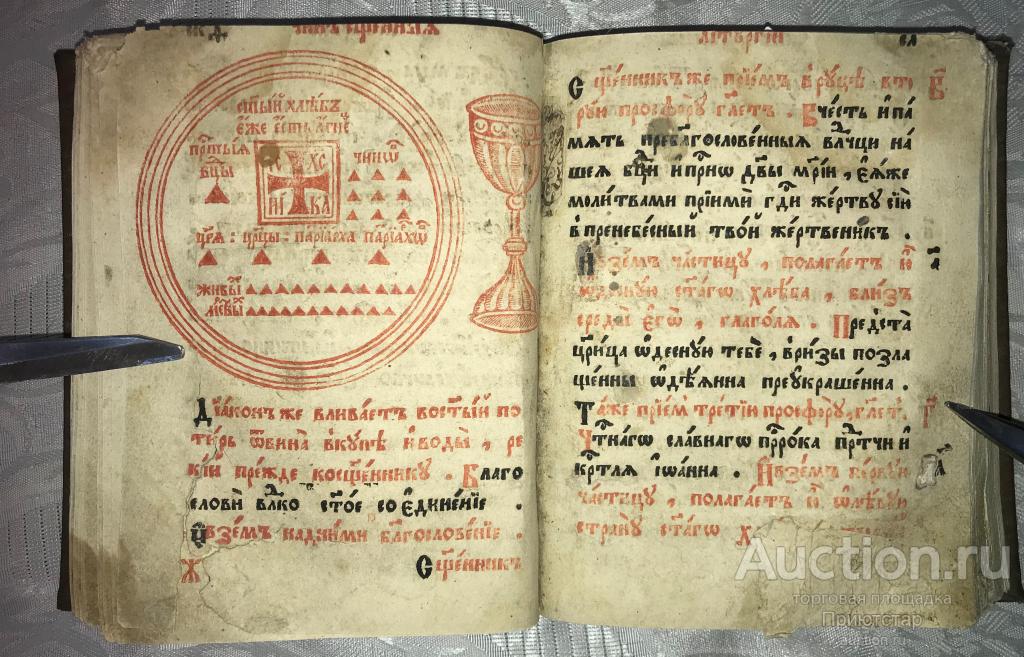 чинъ сщ҃енныѧ
ст҃ый хлѣбъ
є҆́же є҆́сть а҆́гнец
прⷭ҇тыѧ
бцⷣы
ХС
НИ КА
чинѡ́въ
царѧ̀ : црⷣцы : патрїа́рха патрїа́хѡⷡ
живы́ѧ
Дїа́конъ же влива́етъ во ст҃ый по
ти́рь ѿ вина̀ вкꙋ́пѣ и҆ воды̀ , ре
кі́й пре́жде ко сщ҃е́нникꙋ . Благо
словѝ влⷣко ст҃о́е со є҆дине́нїе .
И҆ взе́мъ над ни́ми благослове́нїе .
Ж Сщ҃е́нникъ
літꙋргі́и
Сщ҃е́нникъ же прїе́мъ в рꙋ́цѣ вто
рꙋ́ю просфорꙋ̀ гл҃етъ . В че́сть и҆ па́
мѧть пребл҃гослове́нныѧ влⷣчцы на́
шеѧ бцⷣы и҆ прⷭ҇нѡ дв҃ы мр҃і́и , є҆ѧ́же
моли́твами прїимѝ гдⷭ҇и же́ртвꙋ сїю̀
в пренебе́сный тво́й же́ртвенникъ .
И҆ взе́мъ части́цꙋ , полага́етъ ю҆̀
ст҃а́гѡ хлѣ́ба , бли́зъ
среды̀ є҆гѡ̀ , глаго́лѧ . Предста̀
цр҃и́ца ѡ҆деснꙋ́ю тебѐ , в ри́зы позла
ще́нны ѡ҆дѣ́ѧнна преꙋкра́шенна .
Та́же прїе́м тре́тїи просфорꙋ̀, гл҃етъ.
Чⷭ҇тна́гѡ сла́внагѡ прⷪ҇ро́ка прⷣтчи и҆
крⷭ҇ти́тлѧ і҆ѡа́нна . И҆ взе́мъ пе́рвꙋю
части́цꙋ , полага́етъ ю҆̀ ѡ҆ лѣ́вꙋю
странꙋ̀ ст҃а́гѡ
Auction.ru
торговая площадка
Приютстар
auction.ru